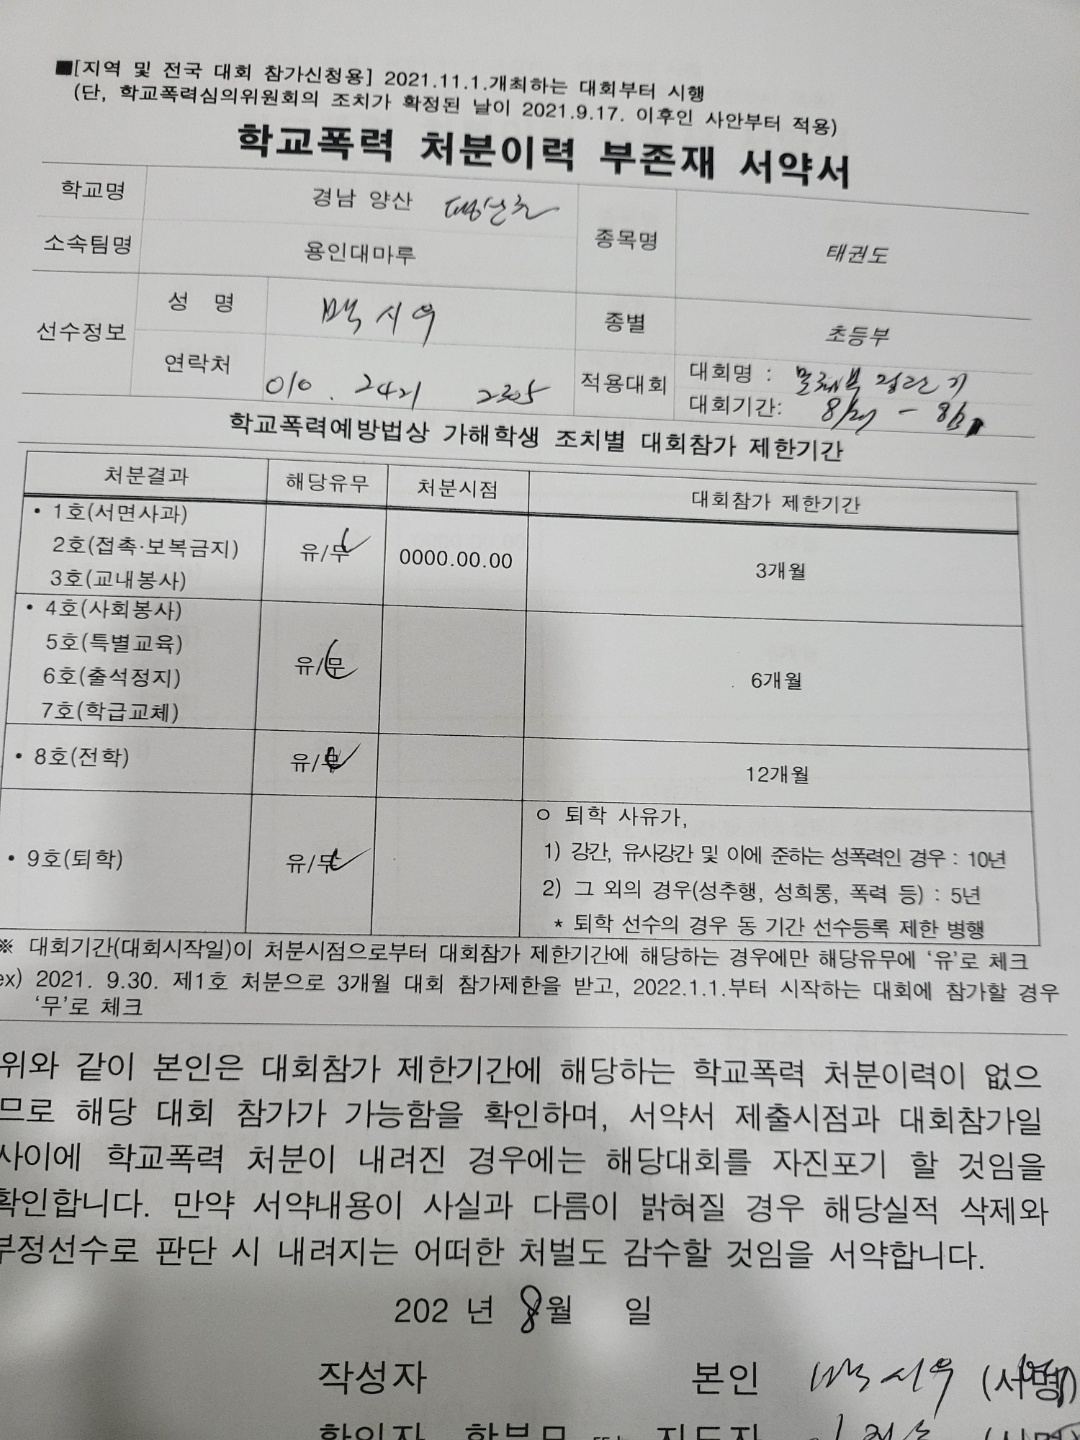 ■[지역 및 전국 대회 참가신청용] 2021.11.1.개최하는 대회부터 시행
(단, 학교폭력심의위원회의 조치가 확정된 날이 2021.9.17. 이후인 사안부터 적용)
학교폭력 처분이력 부존재 서약서
학교명 경남 양산
소속팀명 용인대마루
종목명 태권도
선수정보
성 명 시우
종별 초등부
연락처 010. 2421 2305
적용대회
대회명 :
대회기간:
학교폭력예방법상 가해학생 조치별 대회참가 제한기간
처분결과 해당유무 처분시점 대회참가 제한기간
• 1호(서면사과)
2호(접촉·보복금지) 유/무 0000.00.00 3개월
3호(교내봉사)
• 4호(사회봉사)
5호(특별교육)
유/무 6개월
6호(출석정지)
7호(학급교체)
• 8호(전학) 유/무 12개월
• 9호(퇴학) 유/무
ㅇ 퇴학 사유가,
1) 강간, 유사강간 및 이에 준하는 성폭력인 경우 : 10년
2) 그 외의 경우(성추행, 성희롱, 폭력 등) : 5년
* 퇴학 선수의 경우 동 기간 선수등록 제한 병행
※ 대회기간(대회시작일)이 처분시점으로부터 대회참가 제한기간에 해당하는 경우에만 해당유무에 '유'로 체크
ex) 2021. 9.30. 제1호 처분으로 3개월 대회 참가제한을 받고, 2022.1.1.부터 시작하는 대회에 참가할 경우
'무'로 체크
위와 같이 본인은 대회참가 제한기간에 해당하는 학교폭력 처분이력이 없으
므로 해당 대회 참가가 가능함을 확인하며, 서약서 제출시점과 대회참가일
사이에 학교폭력 처분이 내려진 경우에는 해당대회를 자진포기 할 것임을
확인합니다. 만약 서약내용이 사실과 다름이 밝혀질 경우 해당실적 삭제와
부정선수로 판단 시 내려지는 어떠한 처벌도 감수할 것임을 서약합니다.
202 년 8월 일
작성자 본인 시우 (서명)
확인자 학부모 또는 지도자 (서명)